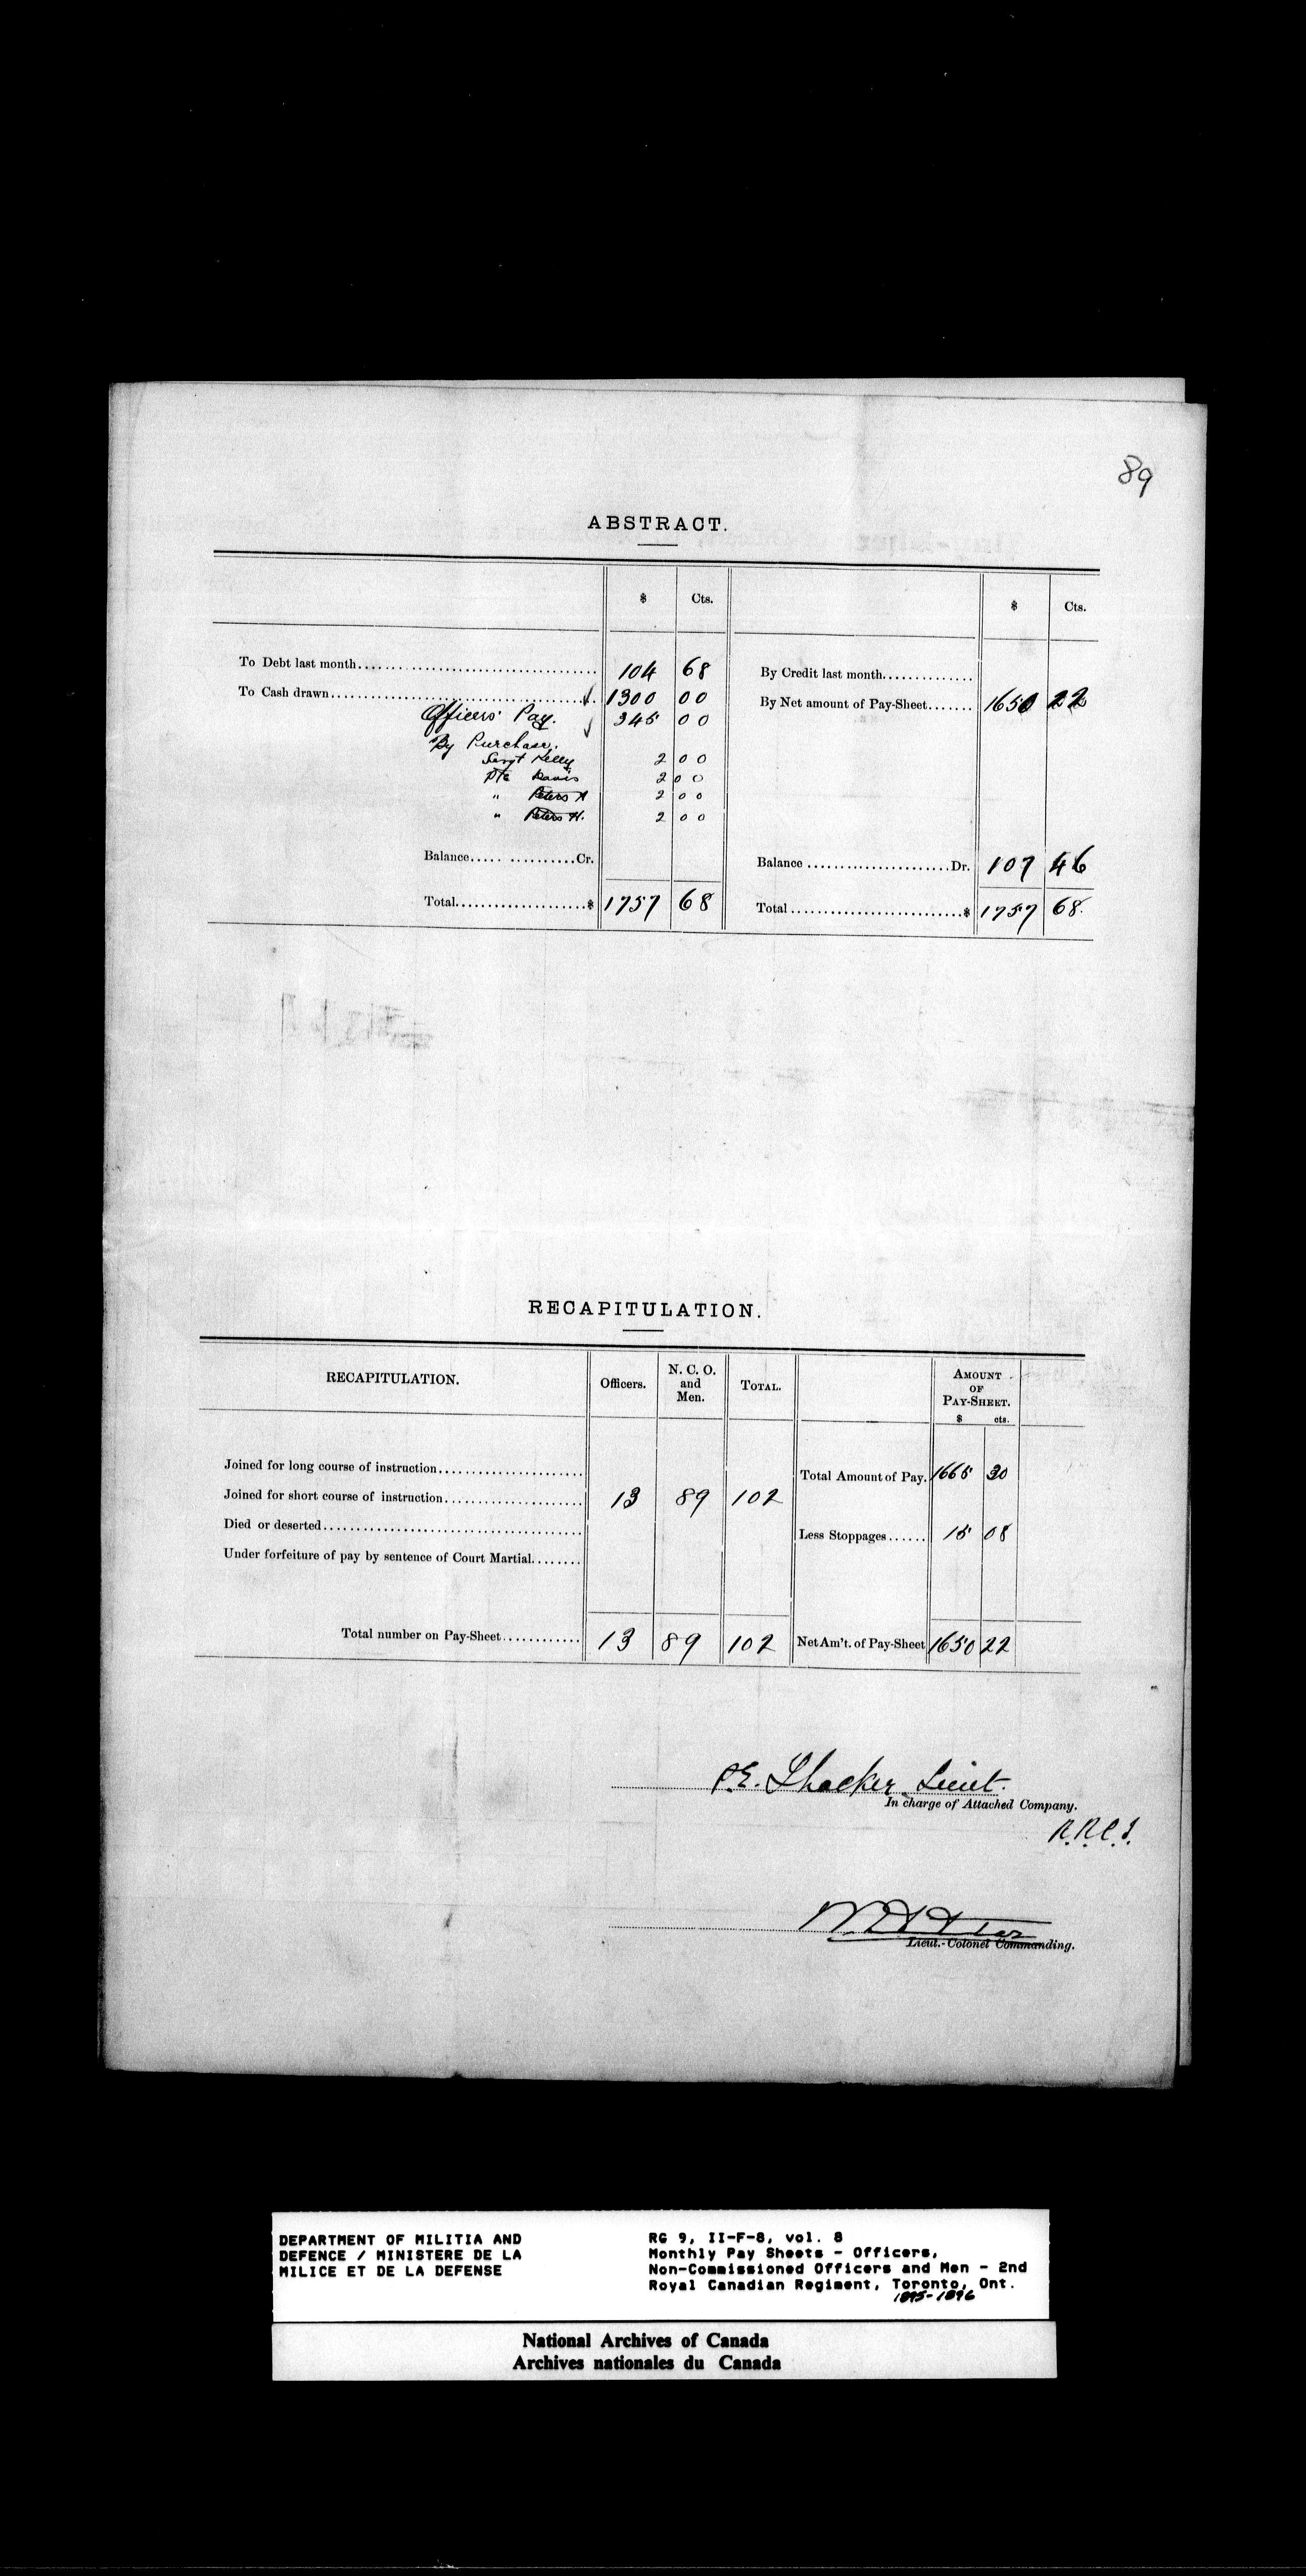 89
ABSTRACT.
$ Cts. $ Cts.
To Debt last month 104 68 By Credit last month
To Cash drawn 1300 00 By Net amount of Pay-Sheet 1650 22
Officers' Pay. 345 00
By Purchase.
Sergt Kelly 2 00
Pte Davis 2 00
" Peters A 2 00
" Peters H. 2 00
Balance Cr. Balance Dr. 107 46
Total $ 1757 68 Total $ 1757 68.
RECAPITULATION.
RECAPITULATION. Officers. N. C. O. and Men. TOTAL. AMOUNT OF PAY-SHEET. $ cts.
Joined for long course of instruction Total Amount of Pay. 1665 30
Joined for short course of instruction 13 89 102
Died or deserted Less Stoppages 15 08
Under forfeiture of pay by sentence of Court Martial
Total number on Pay-Sheet 13 89 102 Net Am't. of Pay-Sheet 1650 22
P.E. Thacker Lieut.
In charge of Attached Company.
R.R.C.I.
Lieut.-Colonel Commanding.
DEPARTMENT OF MILITIA AND
DEFENCE / MINISTERE DE LA
MILICE ET DE LA DEFENSE
RG 9, II-F-8, vol. 8
Monthly Pay Sheets - Officers,
Non-Commissioned Officers and Men - 2nd
Royal Canadian Regiment, Toronto, Ont.
1895-1896
National Archives of Canada
Archives nationales du Canada